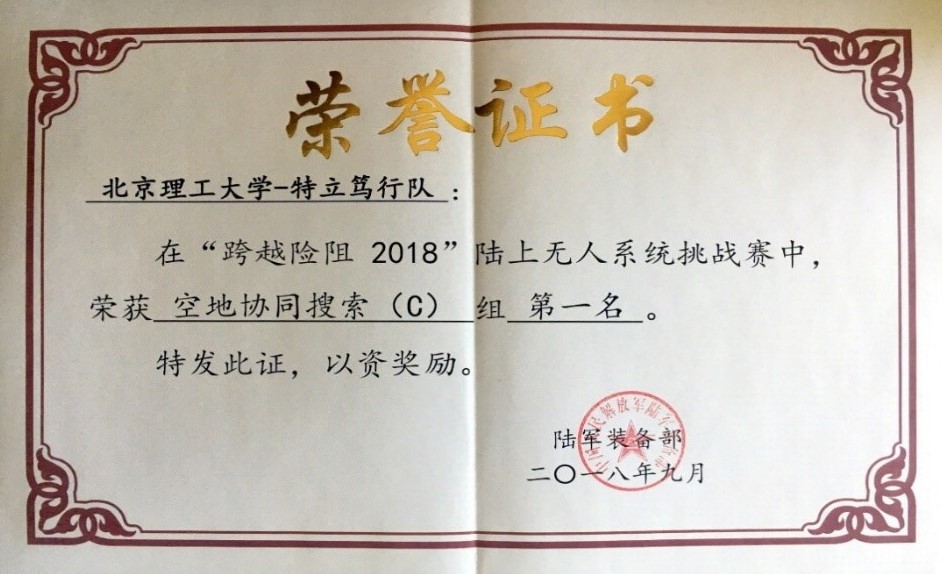 荣誉证书
北京理工大学-特立笃行队:
在“跨越险阻 2018”陆上无人系统挑战赛中,
荣获 空地协同搜索(C) 组 第一名 。
特发此证, 以资奖励。
陆军装备部
二〇一八年九月